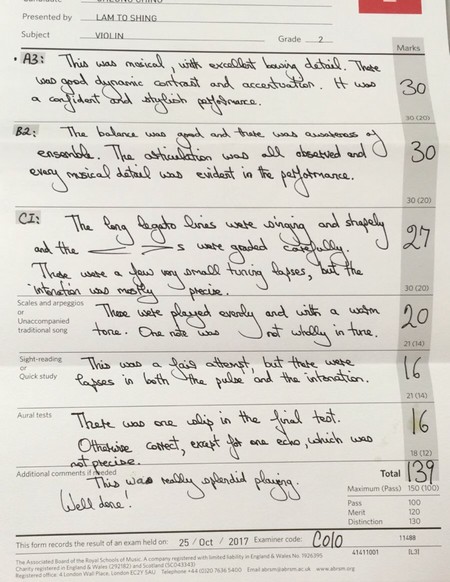 Presented by LAM TO SHING
Subject VIOLIN Grade 2
Marks
• A3: This was musical, with excellent bowing detail. There
was good dynamic contrast and accentuation. It was
a confident and stylish performance.
30
30 (20)
B2: The balance was good and there was awareness of
ensemble. The articulation was all observed and
every musical detail was evident in the performance.
30
30 (20)
C1: The long legato lines were singing and shapely
and the < >s were graded carefully.
There were a few very small tuning lapses, but the
intonation was mostly precise.
27
30 (20)
Scales and arpeggios
or
Unaccompanied
traditional song
These were played evenly and with a warm
tone. One note was not wholly in tune.
20
21 (14)
Sight-reading
or
Quick study
This was a fair attempt, but there were
lapses in both the pulse and the intonation.
16
21 (14)
Aural tests
There was one slip in the final test.
Otherwise correct, except for one echo, which was
not precise.
16
18 (12)
Additional comments if needed
This was really splendid playing.
Well done!
Total 139
Maximum (Pass) 150 (100)
Pass 100
Merit 120
Distinction 130
This form records the result of an exam held on: 25 / Oct / 2017 Examiner code: COLO 11488
The Associated Board of the Royal Schools of Music. A company registered with limited liability in England & Wales No. 1926395
41411001 IL3I
Charity registered in England & Wales (292182) and Scotland (SC043343)
Registered office: 4 London Wall Place, London EC2Y 5AU Telephone +44 (0)20 7636 5400 Email abrsm@abrsm.ac.uk www.abrsm.org